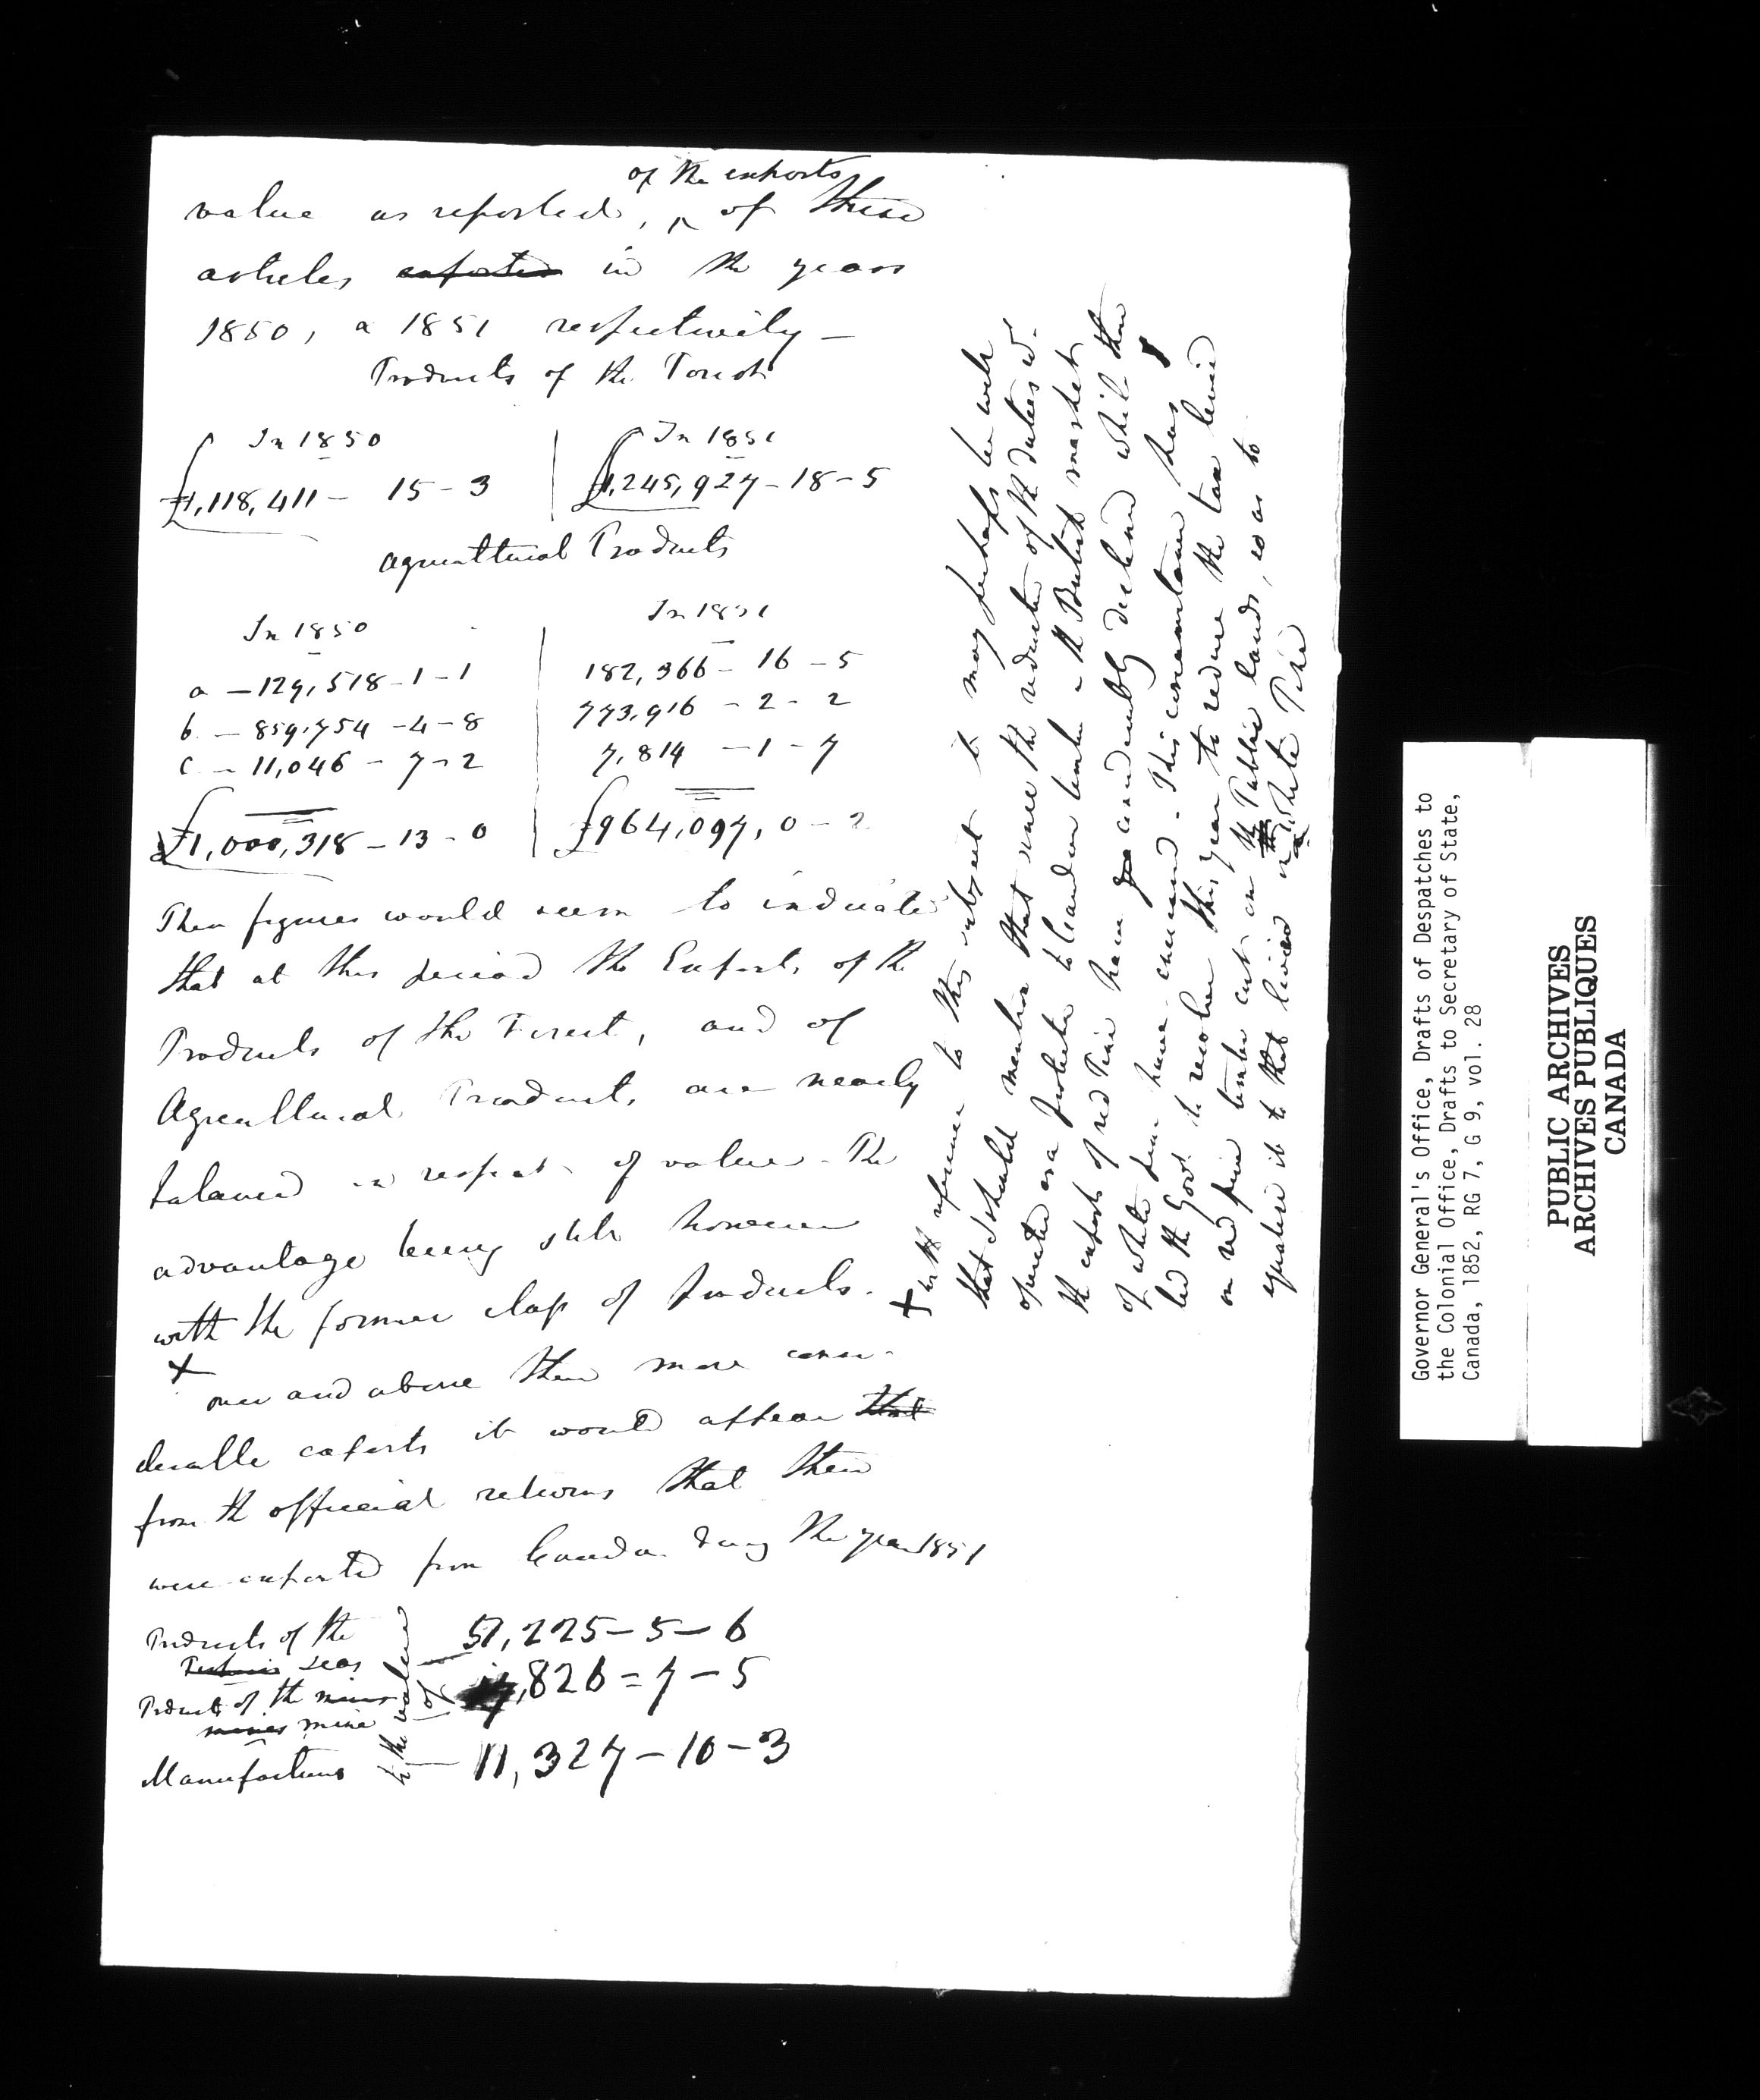 of the exports
value as reported, ^ of these
articles exported in the years
1850, & 1851 respectively —
Products of the Forest
In 1850
£1,118,411 – 15 – 3
In 1851
£1,245,927 – 18 – 5
Agricultural Products
In 1850
a – 129,518 – 1 – 1
b – 859,754 – 4 – 8
c – 11,046 – 7 – 2
£1,000,318 – 13 – 0
In 1851
182,366 – 16 – 5
773,916 – 2 – 2
7,814 – 1 – 7
£964,097, 0 – 2
These figures would seem to indicate
that at this period the Exports of the
Products of the Forest, and of
Agricultural Products are nearly
balanced in respect of value – The
advantage being still however
with the former class of Products.
+
over and above these more consi-
derable exports it would appear that
from the official returns that there
were exported from Canada during the year 1851
Products of the
Fisheries seas
Products of the mines
mines mine
Manufactures
to the value of
– 57,225 – 5 – 6
,826 = 7 – 5
– 11,327 – 10 – 3
+ With reference to this subject it may perhaps be well
that I should mention that since the reduction of the duties wh.
operated as a protection to Canadian timber in the British market
the exports of red Pine have considerably declined while those
of white pine have increased – This circumstance has
led the Govt. to resolve this year to reduce the tax levied
on red pine timber cut on the Public lands, so as to
equalize it to that levied on White Pine
Governor General's Office, Drafts of Despatches to
the Colonial Office, Drafts to Secretary of State,
Canada, 1852, RG 7, G 9, vol. 28
PUBLIC ARCHIVES
ARCHIVES PUBLIQUES
CANADA